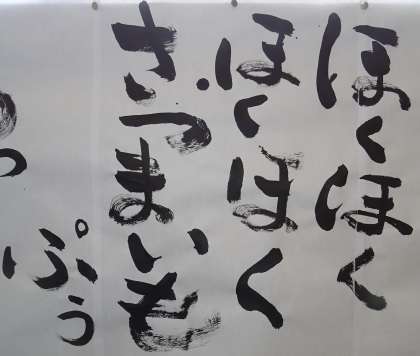 ほくほく
ほくほく
さつまいも
ぷぅ